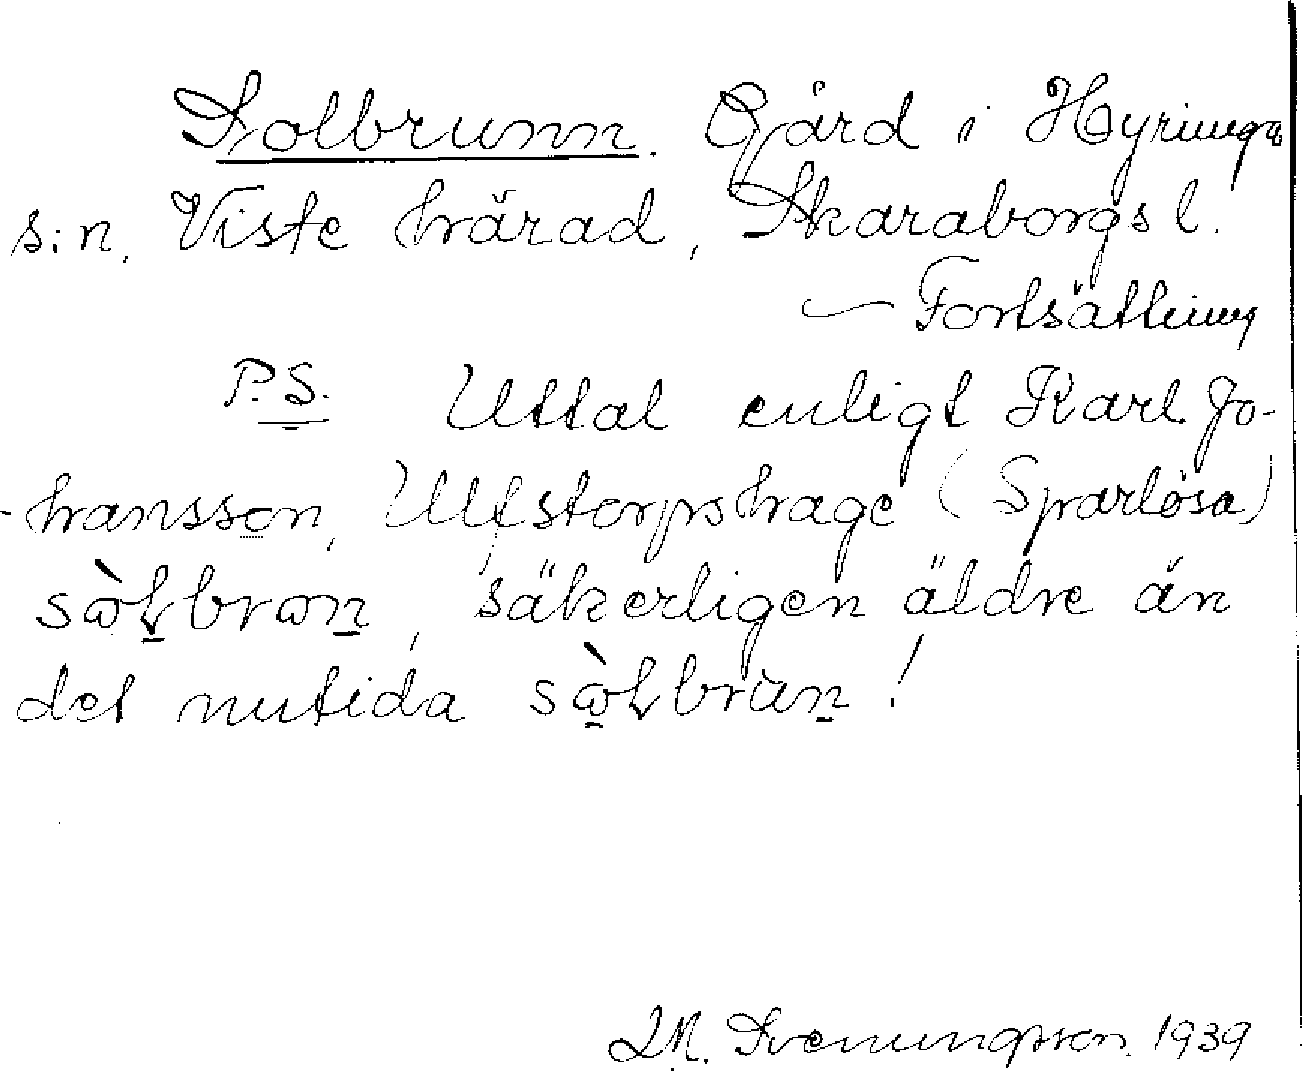 Solbrunn. Gård i Hyringa
s:n, Viste härad, Skaraborgs l.
— Fortsättning
P.S. Uttal enligt Karl Jo-
-hansson, Ulfstorpshage (Sparlösa)
sὼɫbrωn, säkerligen äldre än
det nutida sὼɫbrun!
Svenungsson. 1939